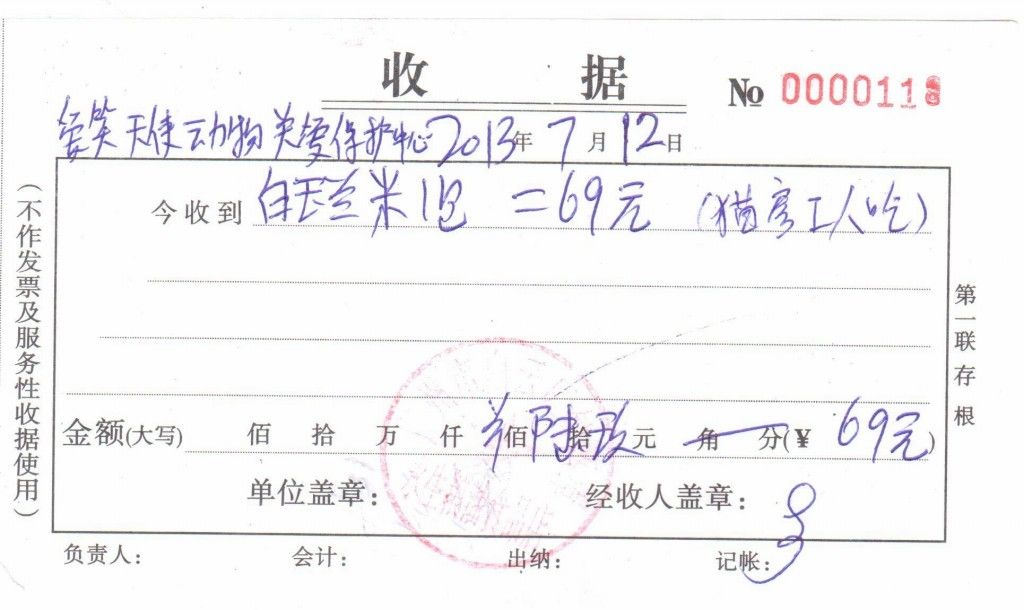 收 据
№ 0000118
爱笑天使动物关爱保护中心 2013年 7月 12日
今收到 白玉兰米1包 =69元 (猫房工人吃)
金额(大写) 佰 拾 万 仟 佰 陆 拾 玖 元 角 分(¥ 69元)
单位盖章: 经收人盖章:
负责人: 会计: 出纳: 记帐:
(不作发票及服务性收据使用)
第一联存根